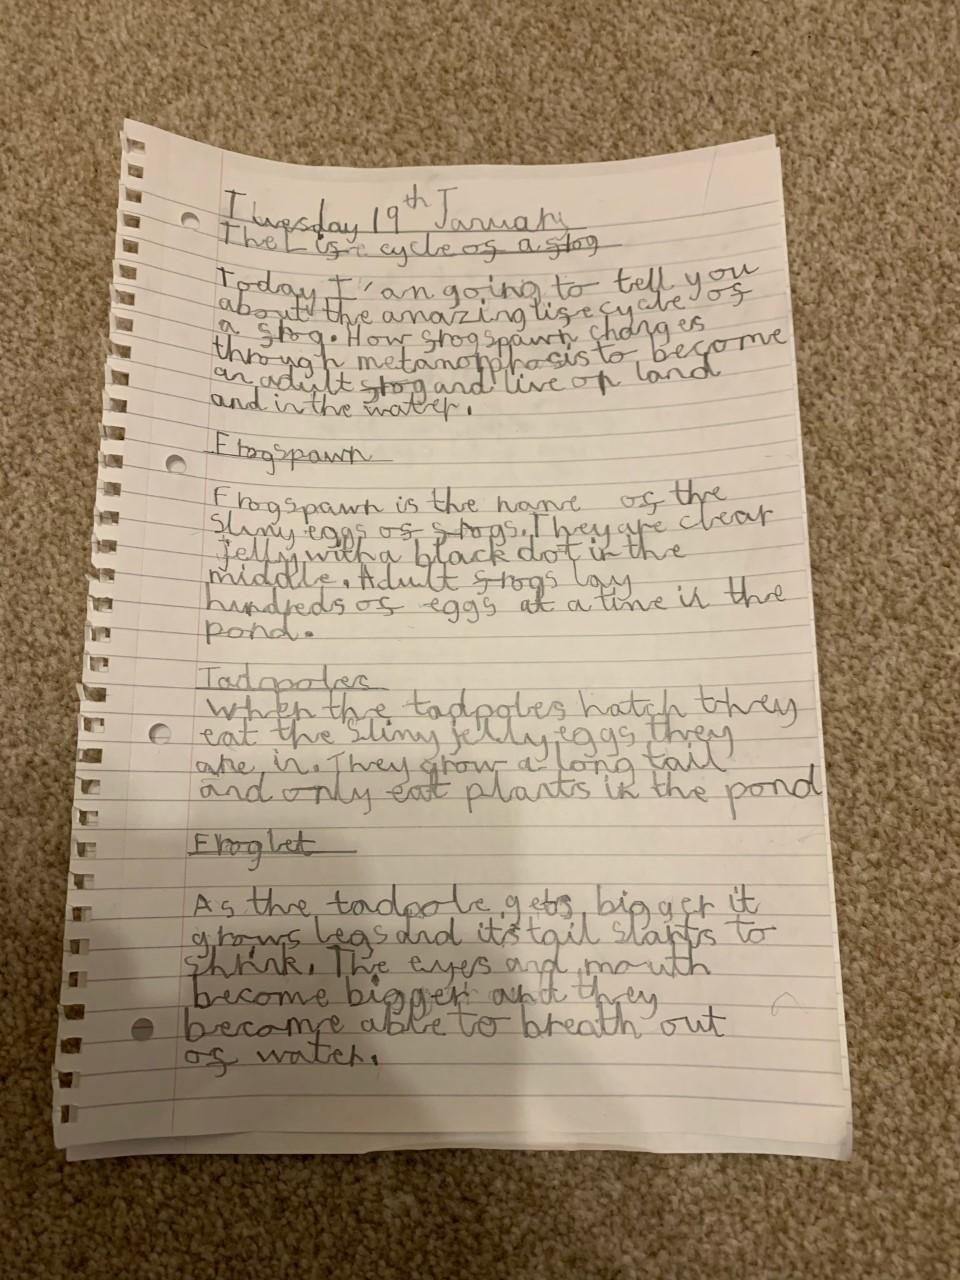 Tuesday 19th January
The Life cycle of a frog
Today I'am going to tell you
about the amazing life cycle of
a frog. How frogspawn changes
through metamorphosis to become
an adult frog and live on land
and in the water.
Frogspawn
Frogspawn is the name of the
slimy eggs of frogs. They are clear
jelly with a black dot in the
middle. Adult frogs lay
hundreds of eggs at a time in the
pond.
Tadpoles
When the tadpoles hatch they
eat the slimy jelly eggs they
are in. They grow a long tail
and only eat plants in the pond
Froglet
As the tadpole gets bigger it
grows legs and its tail starts to
shrink. The eyes and mouth
become bigger and they
become able to breath out
of water.